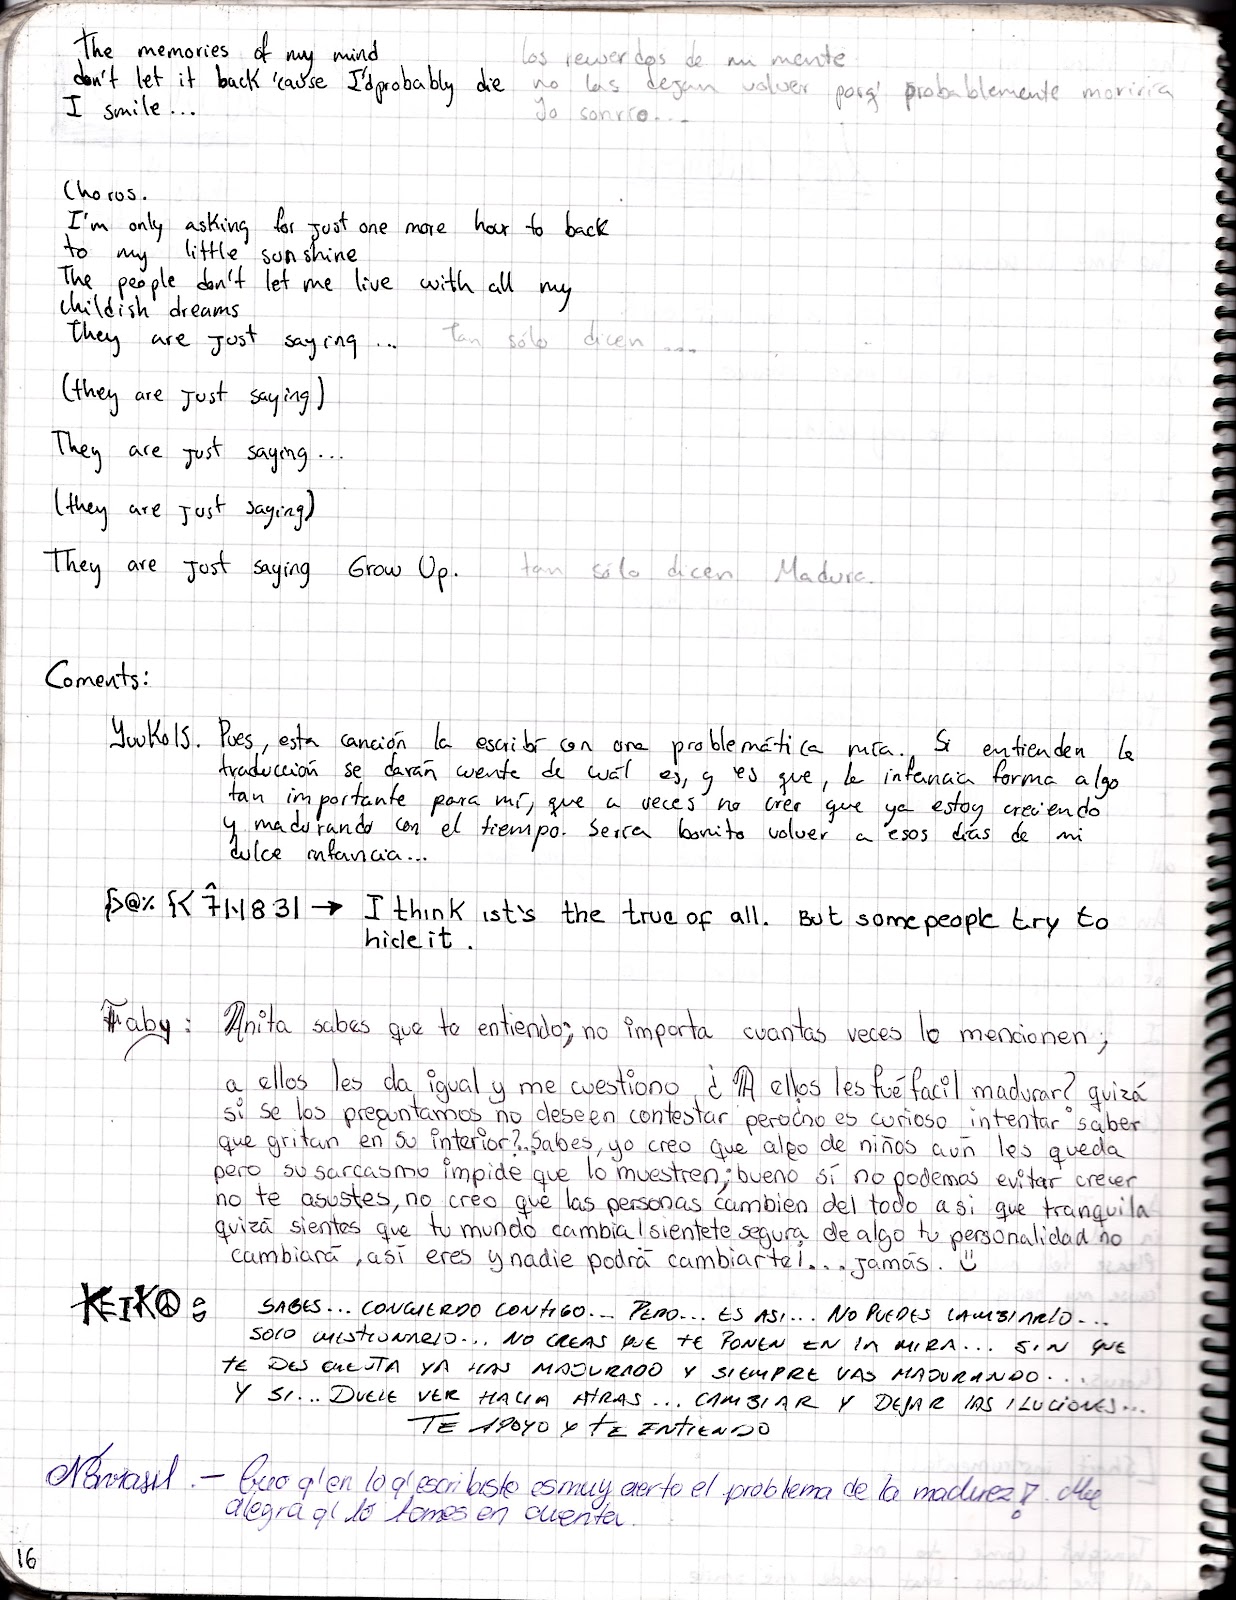 The memories of my mind los recuerdos de mi mente
don't let it back 'cause I'd probably die no las dejan volver porq' probablemente moriria
I smile... Yo sonrío...
Choros.
I'm only asking for just one more hour to back
to my little sunshine
The people don't let me live with all my
childish dreams
They are just saying... tan sólo dicen ...
(they are just saying)
They are just saying...
(they are just saying)
They are just saying Grow Up. tan sólo dicen Madura.
Coments:
Pues, esta canción la escribí con una problemática mía. Si entienden la
traducción se darán cuenta de cuál es, y es que, la infancia forma algo
tan importante para mí, que a veces no creo que ya estoy creciendo
y madurando con el tiempo. Sería bonito volver a esos días de mi
dulce infancia...
→ I think ist's the true of all. But some people try to
hide it.
Faby: Anita sabes que te entiendo; no importa cuantas veces lo mencionen;
a ellos les da igual y me cuestiono ¿A ellos les fué facil madurar? quizá
si se los preguntamos no deseen contestar pero ¿no es curioso intentar saber
que gritan en su interior?..Sabes, yo creo que algo de niños aún les queda
pero su sarcasmo impide que lo muestren; bueno sí no podemos evitar crecer
no te asustes, no creo que las personas cambien del todo asi que tranquila
quizá sientes que tu mundo cambia ! sientete segura de algo tu personalidad no
cambiará, así eres y nadie podrá cambiarte!... jamás.
KEIKO: SABES... CONCUERDO CONTIGO... PERO... ES ASI... NO PUEDES CAMBIARLO...
SOLO CUESTIONARLO... NO CREAS QUE TE PONEN EN LA MIRA... SIN QUE
TE DES CUENTA YA HAS MADURADO Y SIEMPRE VAS MADURANDO...
Y SI... DUELE VER HACIA ATRAS... CAMBIAR Y DEJAR LAS ILUCIONES...
TE APOYO Y TE ENTIENDO
.- Creo q' en lo q' escribiste es muy cierto el problema de la madurez! Me
alegra q' lo tomes en cuenta.
16